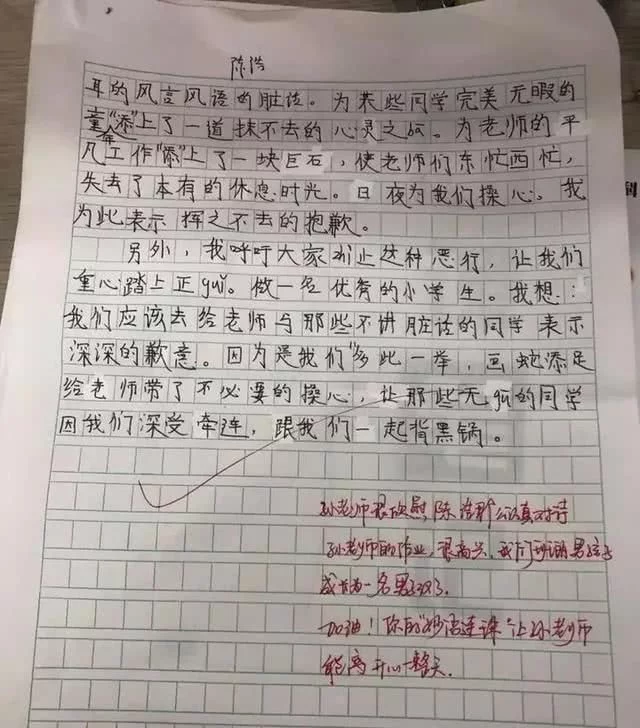 陈浩
耳的风言风语的脏话。为某些同学完美无暇的
童年"添"上了一道抹不去的心灵之
为老师的平
凡工作"添"上了一块巨石，使老师们东忙西忙，
失去了本有的休息时光。日夜为我们操心。我
为此表示挥之不去的抱歉。
另外，我呼吁大家制止这种恶行，让我们
重心踏上正guǐ。做一名优秀的小学生。我想：
我们应该去给老师与那些不讲脏话的同学表示
深深的歉意。因为是我们"多此一举，画蛇添足
给老师带了不必要的操心，让那些无gū的同学
因我们深受牵连，跟我们一起背黑锅。
孙老师很欣慰，陈浩那么认真对待
孙老师的作业，很高兴，我们班的男孩
成长为一名男子汉了。
加油！你的"妙语连珠"让孙老师
能开心一整天。